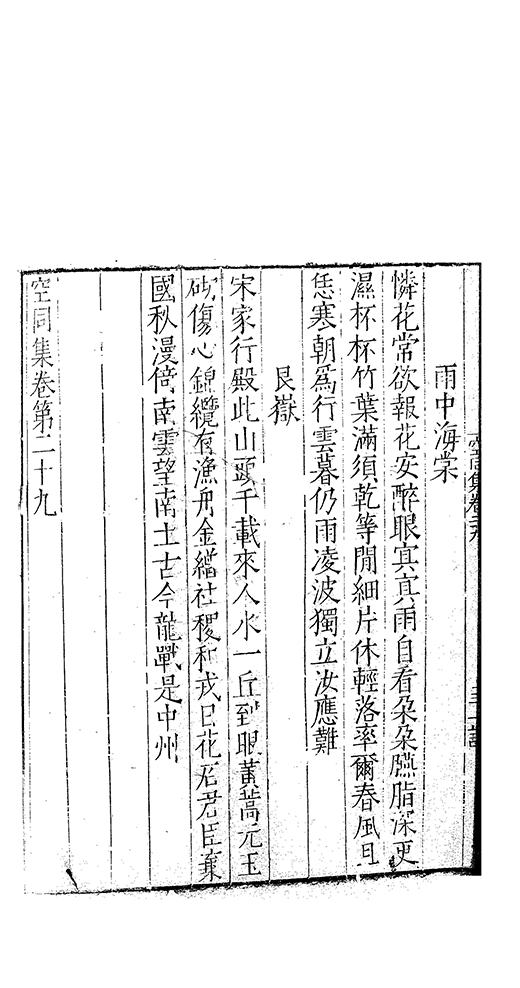 雨中海棠
憐花常欲報花安醉眼㝠㝠雨自看朶朶臙脂深更
濕杯杯竹葉滿須乾等閒細片休輕落率爾春風且
恁寒朝爲行雲暮仍雨凌波獨立汝應難
艮嶽
宋家行殿此山頭千載來人水一丘到眼黃蒿元玉
砌傷心錦纜有漁舟金繒社稷和戎日花石君臣棄
國秋漫倚南雲望南土古今龍戰是中州
空同集卷第二十九